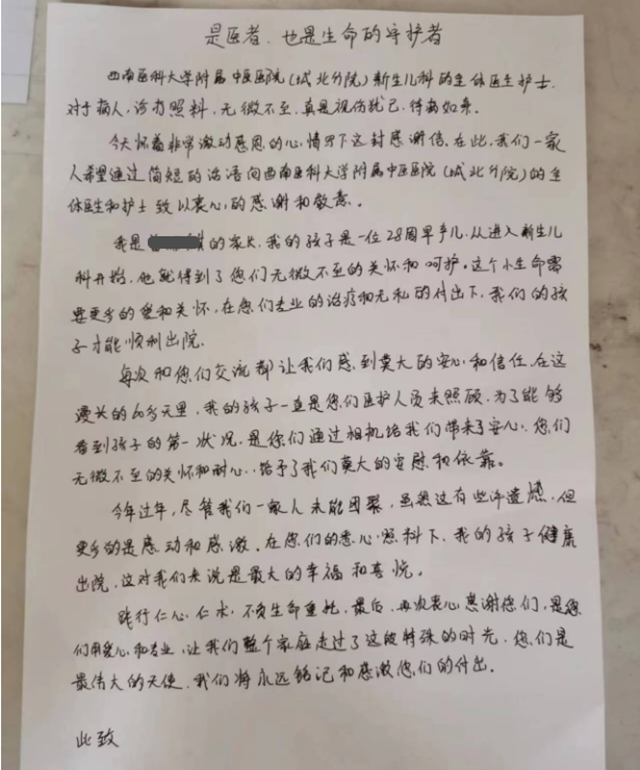 是医者、也是生命的守护者
西南医科大学附属中医医院(城北分院)新生儿科的全体医生护士,
对于病人,诊疗照料,无微不至,真是视伤犹己,待病如亲。
今天怀着非常激动感恩的心,情写下这封感谢信。在此,我们一家
人希望通过简短的话语向西南医科大学附属中医医院(城北分院)的全
体医生和护士致以衷心,的感谢和敬意。
我是 的家长,我的孩子是一位28周早产儿,从进入新生儿
科开始,他就得到了您们无微不至的关怀和呵护。这个小生命需
要更多的爱和关怀,在您们专业的治疗和无私的付出下,我们的孩
子才能顺利出院,
每次和您们交流都让我们感到莫大的安心和信任,在这
漫长的60多天里,我的孩子一直是您们医护人员来照顾,为了能够
看到孩子的第一状况,是你们通过相机给我们带来了安心,您们
无微不至的关怀和耐心,给予了我们莫大的安慰和依靠。
今年过年,尽管我们一家人未能团聚,虽然这有些许遗憾,但
更多的是感动和感激。在您们的悉心照料下,我的孩子健康
出院,这对我们来说是最大的幸福和喜悦。
践行仁心,仁术,不负生命重托,最后,再次衷心感谢您们,是您
们用爱心和专业,让我们整个家庭走过了这段特殊的时光,您们是
最伟大的天使,我们将永远铭记和感激您们的付出。
此致